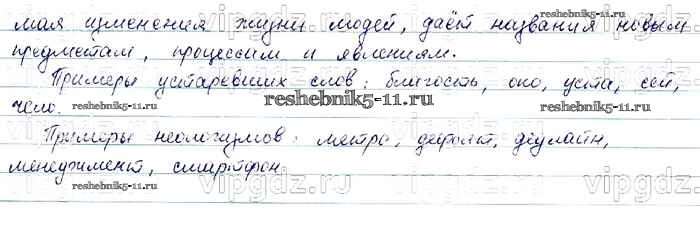 мая изменения жизни людей, даёт названия новым
предметам, процессам и явлениям.
Примеры устаревших слов: благость, око, уста, сей,
чело.
reshebnik5-11.ru
reshebnik5-11.ru
reshebnik5-11.ru
Примеры неологизмов: метро, дефолт, дедлайн,
менеджмент, смартфон
vipgdz.ru
vipgdz.ru
reshebnik5-11.ru
reshebnik5-11.ru